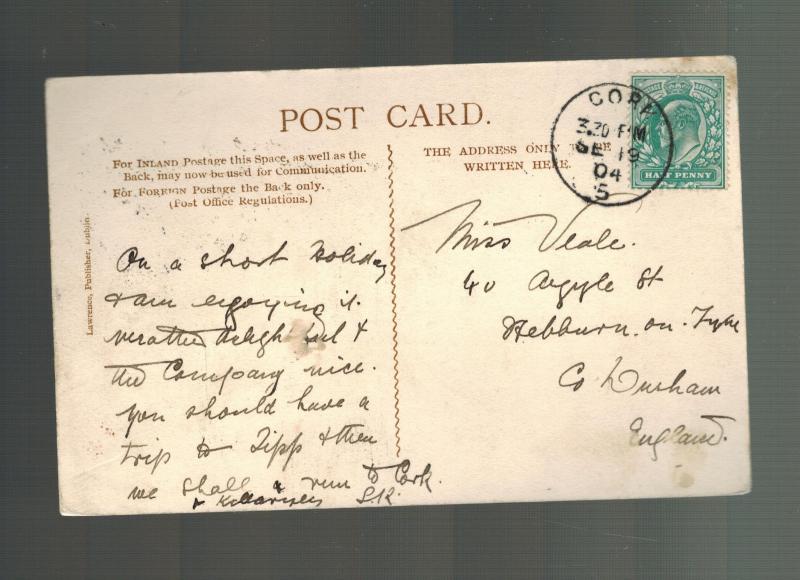 POST CARD.
For INLAND Postage this Space, as well as the
Back, may now be used for Communication.
For FOREIGN Postage the Back only.
(Post Office Regulations.)
THE ADDRESS ONLY TO BE
WRITTEN HERE.
CORK
3.30 PM
SE 19
04
5
HALF PENNY
Lawrence, Publisher, Dublin.
On a short holiday
& am enjoying it.
weather delightful &
the Company nice.
you should have a
trip to Tipp & then
we shall run to Cork.
& Killarney S.K.
Miss Veale.
40 Argyle St
Hebburn. on. Tyne
Co Durham
England.